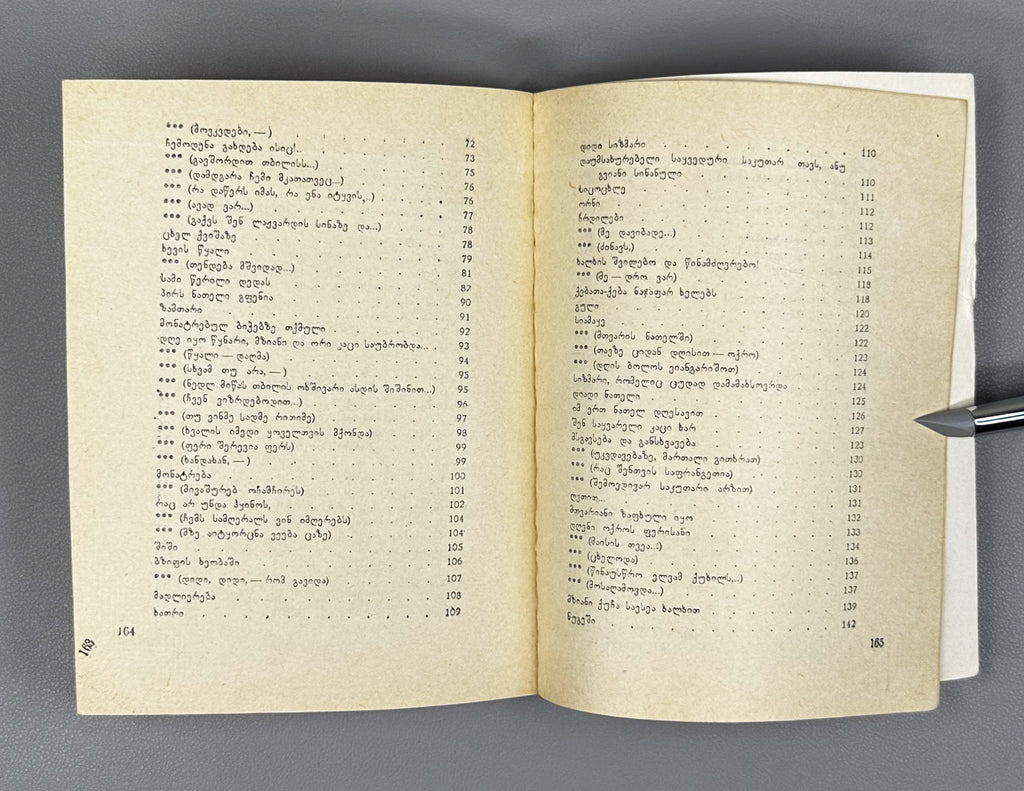 *** (მოვკვდები, — ) . . . . . . . 72
ჩემოდენა გახდება ისიც!.. . . . . . . 73
*** (გავშორდით თბილისს...) . . . . . 75
*** (დამდგარა ჩემი მკათათვეც...) . . . . 76
*** (რა დაწერს იმას, რა ენა იტყვის,..) . . . . 76
*** (ავად ვარ...) . . . . . . . 77
*** (გაქვს შენ ლაჟვარდის სინაზე და...) . . . 78
ცხელ ქვიშაზე . . . . . . . 78
ხევის წყალი . . . . . . . 79
*** (თენდება მშვიდად...) . . . . . 81
სამი წერილი დედას . . . . . . 87
პირს ნათელი გფენია . . . . . . 90
ზამთარი . . . . . . . . 91
მონატრებულ ბიჭებზე თქმული . . . . . 92
დღე იყო წყნარი, მზიანი და ორი კაცი საუბრობდა... . 93
*** (წყალი — დაღმა) . . . . . . 94
*** (სხვამ თუ არა, — ) . . . . . . 95
*** (ნედლ მიწას თბილის ოხშივარი ასდის შიშინით...) 95
*** (ჩვენ ვიზრდებოდით...) . . . . . 96
*** (თუ ვინმე სადმე რითიმე) . . . . . 97
*** (ხვალის იმედი ყოველთვის მქონდა) . . . 98
*** (ფერი შერევია ფერს) . . . . . 99
*** (ხანდახან, — ) . . . . . . 99
მონატრება . . . . . . . 100
*** (მივაშურებ ოჩამჩირეს) . . . . . 101
რაც არ უნდა ჰყინოს, . . . . . . 102
*** (ჩემს სამღერალს ვინ იმღერებს) . . . . 104
*** (მზე აიტყორცნა ვეება ცაზე) . . . . 104
შიში . . . . . . . . 105
ბზიფის ხეობაში . . . . . . . 106
*** (დიდი, დიდი, — რომ გავიდა) . . . . 107
მადლიერება . . . . . . . 108
ხათრი . . . . . . . . 109
164
163
დიდი სიზმარი . . . . . . . 110
დაუმსახურებელი საყვედური საკუთარ თავს, ანუ
გვიანი სინანული . . . . . . 110
სიცოცხლე . . . . . . . 111
ორნი . . . . . . . . 112
ჩრდილები . . . . . . . 112
*** (მე დავიბადე...) . . . . . . 113
*** (ძინავს,) . . . . . . . 114
ხალხის შვილებო და წინამძღვრებო! . . . . 115
*** (მე — დრო ვარ) . . . . . . 118
ქებათა-ქება ნაჯაფარ ხელებს . . . . . 118
გული . . . . . . . . 120
სიამაყე . . . . . . . . 122
*** (მთვარის ნათელში) . . . . . . 122
*** (თავზე ციდან დღისით — ოქრო) . . . . 123
*** (დღის ბოლოს ვიანგარიშოთ) . . . . 124
სიზმარი, რომელიც ცუდად დამამახსოვრდა . . . 124
დიადი ნათელი . . . . . . . 125
იმ ერთ ნათელ დღესავით . . . . . 126
შენ საყვარელი კაცი ხარ . . . . . 127
მსგავსება და განსხვავება . . . . . 123
*** (უკვდავებაზე, მართალი გითხრათ) . . . 130
*** (რაც შენთვის საფრანგეთია) . . . . 130
*** (შემოვდივარ საკუთარი არზით) . . . . 131
ღვთით... . . . . . . . . 131
მთვარიანი ზაფხული იყო . . . . . 132
დღენი ოქროს ფერისანი . . . . . . 133
*** (მაისის თვეა...) . . . . . . 134
*** (ცხელოდა) . . . . . . . 136
*** (წინაუსწრო ელვამ ქუხილს,..) . . . . 137
*** (მოსაღამოვდა...) . . . . . . 137
მზიანი ქუჩა სავსეა ხალხით . . . . . 139
ნუგეში . . . . . . . . 142
165